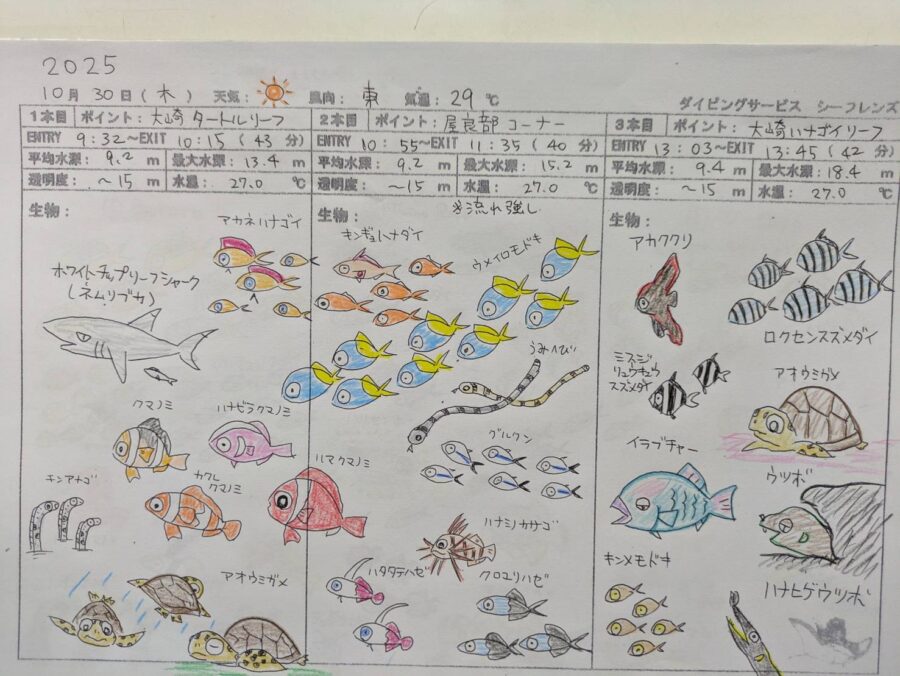 2025
10月 30日(木) 天気: 風向: 東 気温: 29℃
ダイビングサービス シーフレンズ
1本目 ポイント: 大崎 タートルリーフ
ENTRY 9:32~EXIT 10:15 (43 分)
平均水深: 9.2 m 最大水深: 13.4 m
透明度: ~15 m 水温: 27.0 ℃
生物:
アカネハナゴイ
ホワイトチップリーフシャーク
(ネムリブカ)
クマノミ
ハナビラクマノミ
カクレ
クマノミ
ハマクマノミ
キンアナゴ
アオウミガメ
2本目 ポイント: 屋良部 コーナー
ENTRY 10:55~EXIT 11:35 (40 分)
平均水深: 9.2 m 最大水深: 15.2 m
透明度: ~15 m 水温: 27.0 ℃
生物:
※流れ強し
キンギョハナダイ
ウメイロモドキ
うみへび
グルクン
ハナミノカサゴ
ハタタテハゼ
クロユリハゼ
3本目 ポイント: 大崎ハナゴイリーフ
ENTRY 13:03~EXIT 13:45 (42 分)
平均水深: 9.4 m 最大水深: 18.4 m
透明度: ~15 m 水温: 27.0 ℃
生物:
アカククリ
ロクセンスズメダイ
ミスジ
リュウキュウ
スズメダイ
アオウミガメ
イラブチャー
ウツボ
キンメモドキ
ハナヒゲウツボ